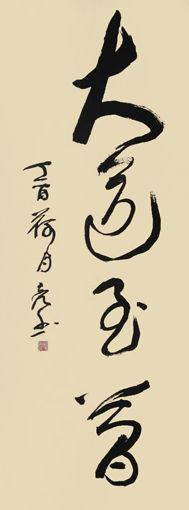 大道至簡
丁酉荷月